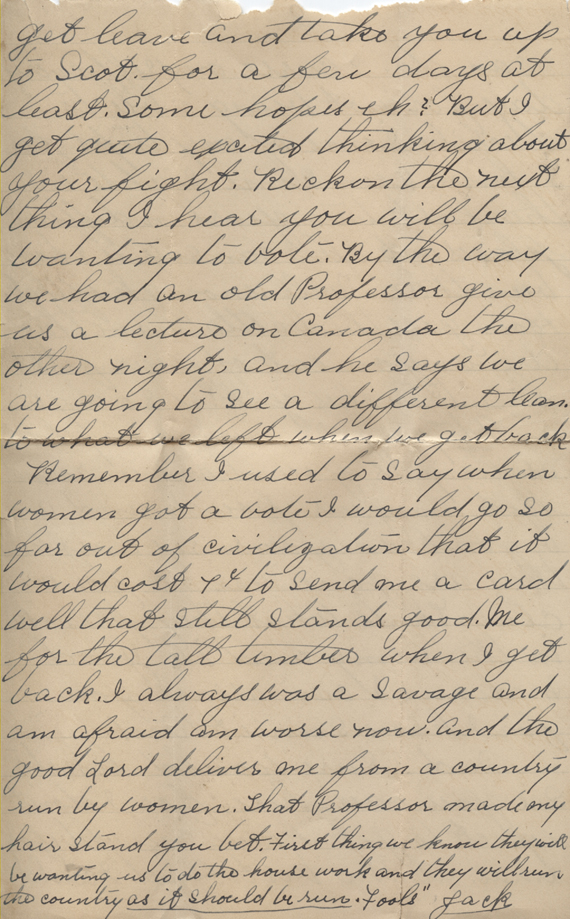 get leave and take you up
to Scot. for a few days at
least. Some hopes eh? But I
get quite excited thinking about
your fight. Reckon the next
thing I hear you will be
wanting to vote. By the way
we had an old Professor give
us a lecture on Canada the
other night, and he says we
are going to see a different
to what we left when we get back
Remember I used to say when
women got a vote I would go so
far out of civilization that it
would cost to send me a card
well that still stands good. Me
for the tall timber when I get
back. I always was a savage and
am afraid am worse now. And the
good Lord deliver me from a country
run by women. That Professor made my
hair stand you bet. First thing we know they will
be wanting us to do the house work and they will run
the country as it should be run. Fools" Jack